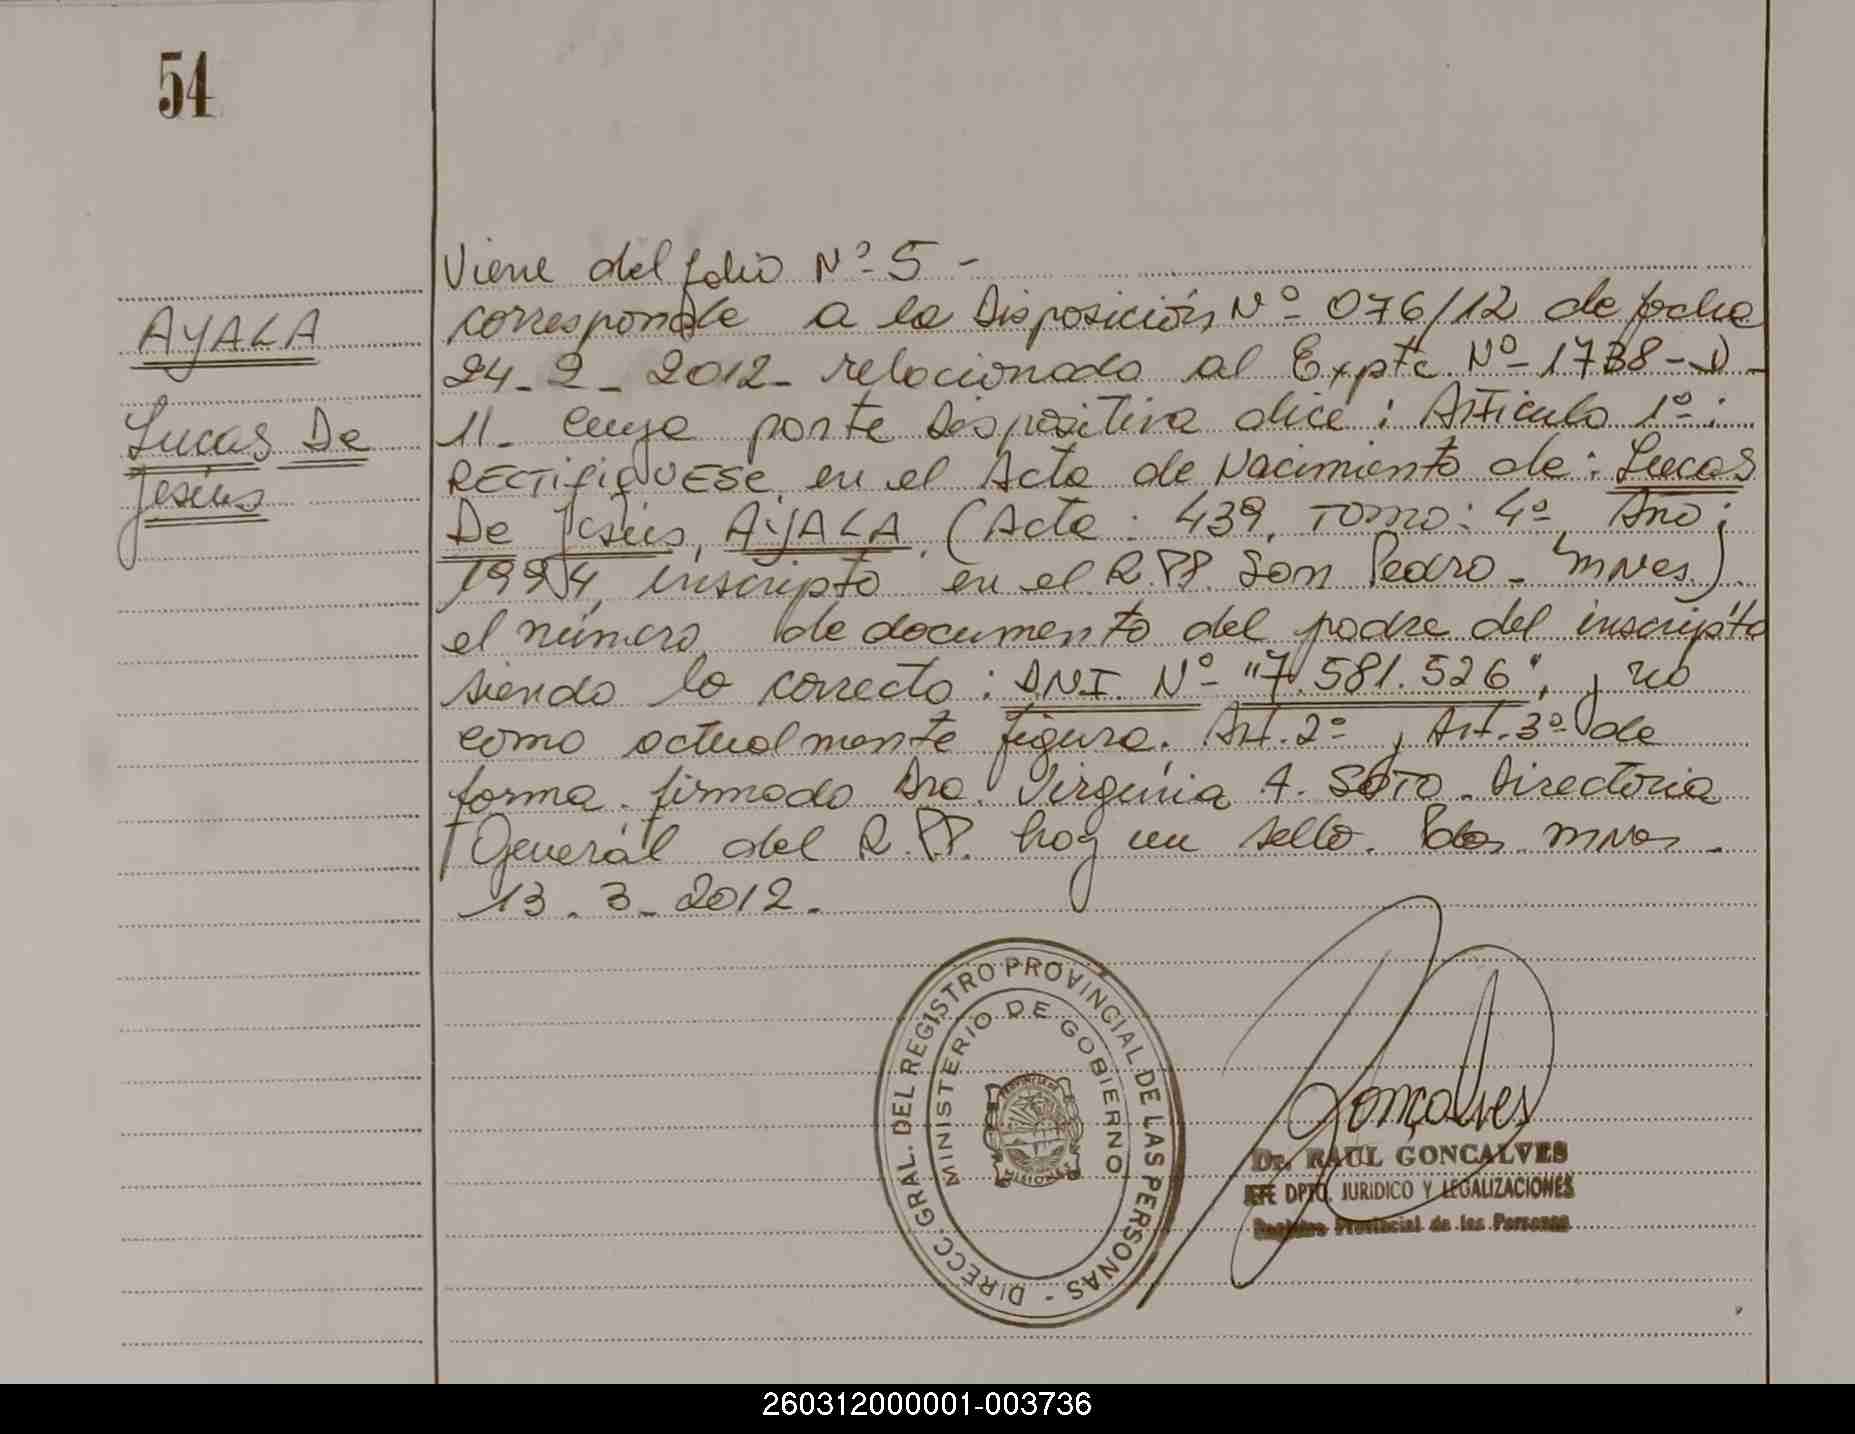 54
AYALA
Lucas De
Jesús
Viene del folio Nº 5 -
corresponde a la Disposición Nº 076/12 de fecha
24-2-2012- relacionado al Expte. Nº 1738-D-
11- cuya parte Dispositiva dice: Articulo 1º:
RECTIFIQUESE, en el Acta de Nacimiento de: Lucas
De Jesús, AYALA. (Acta: 439, Tomo: 4º, Año:
1994, inscripto en el R.PP. San Pedro - Mnes.)
el número de documento del padre del inscripto
siendo lo correcto: DNI. Nº "7.581.526", y no
como actualmente figura. Art. 2º y Art. 3º de
forma. firmado Dra. Virginia A. SOTO. Directoria
General del R.PP. hay un sello. Pdas. Mnes.
13.3-2012.
DIRECC. GRAL. DEL REGISTRO PROVINCIAL DE LAS PERSONAS -
MINISTERIO DE GOBIERNO
PROVINCIA DE
MISIONES
Gonçalves
Dr. RAUL GONCALVES
JEFE DPTO. JURIDICO Y LEGALIZACIONES
Registro Provincial de las Personas
260312000001-003736